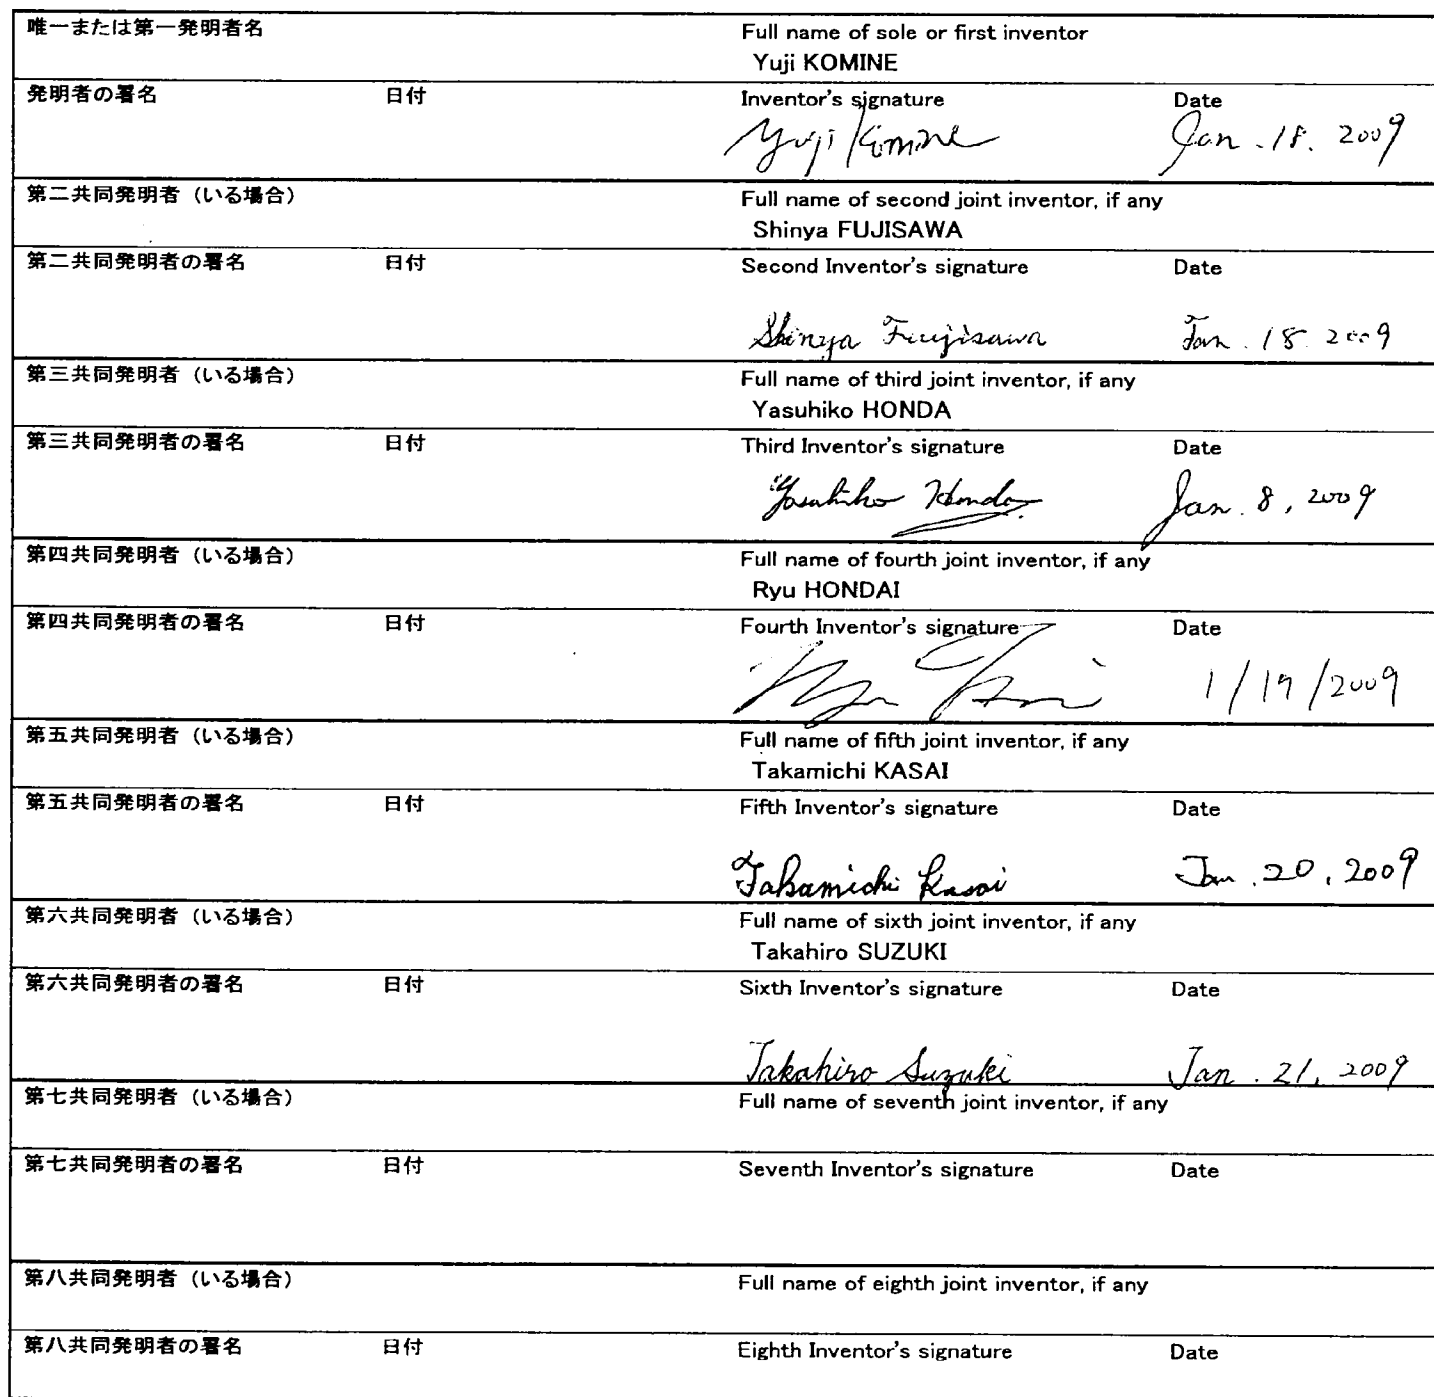 唯一または第一発明者名
Full name of sole or first inventor
Yuji KOMINE
発明者の署名 日付
Inventor's signature Date
Yuji Komine Jan. 18. 2009
第二共同発明者（いる場合）
Full name of second joint inventor, if any
Shinya FUJISAWA
第二共同発明者の署名 日付
Second Inventor's signature Date
Shinya Fujisawa Jan. 18. 2009
第三共同発明者（いる場合）
Full name of third joint inventor, if any
Yasuhiko HONDA
第三共同発明者の署名 日付
Third Inventor's signature Date
Yasuhiko Honda Jan. 8, 2009
第四共同発明者（いる場合）
Full name of fourth joint inventor, if any
Ryu HONDAI
第四共同発明者の署名 日付
Fourth Inventor's signature Date
1/19/2009
第五共同発明者（いる場合）
Full name of fifth joint inventor, if any
Takamichi KASAI
第五共同発明者の署名 日付
Fifth Inventor's signature Date
Takamichi Kasai Jan. 20, 2009
第六共同発明者（いる場合）
Full name of sixth joint inventor, if any
Takahiro SUZUKI
第六共同発明者の署名 日付
Sixth Inventor's signature Date
Takahiro Suzuki Jan. 21, 2009
第七共同発明者（いる場合）
Full name of seventh joint inventor, if any
第七共同発明者の署名 日付
Seventh Inventor's signature Date
第八共同発明者（いる場合）
Full name of eighth joint inventor, if any
第八共同発明者の署名 日付
Eighth Inventor's signature Date